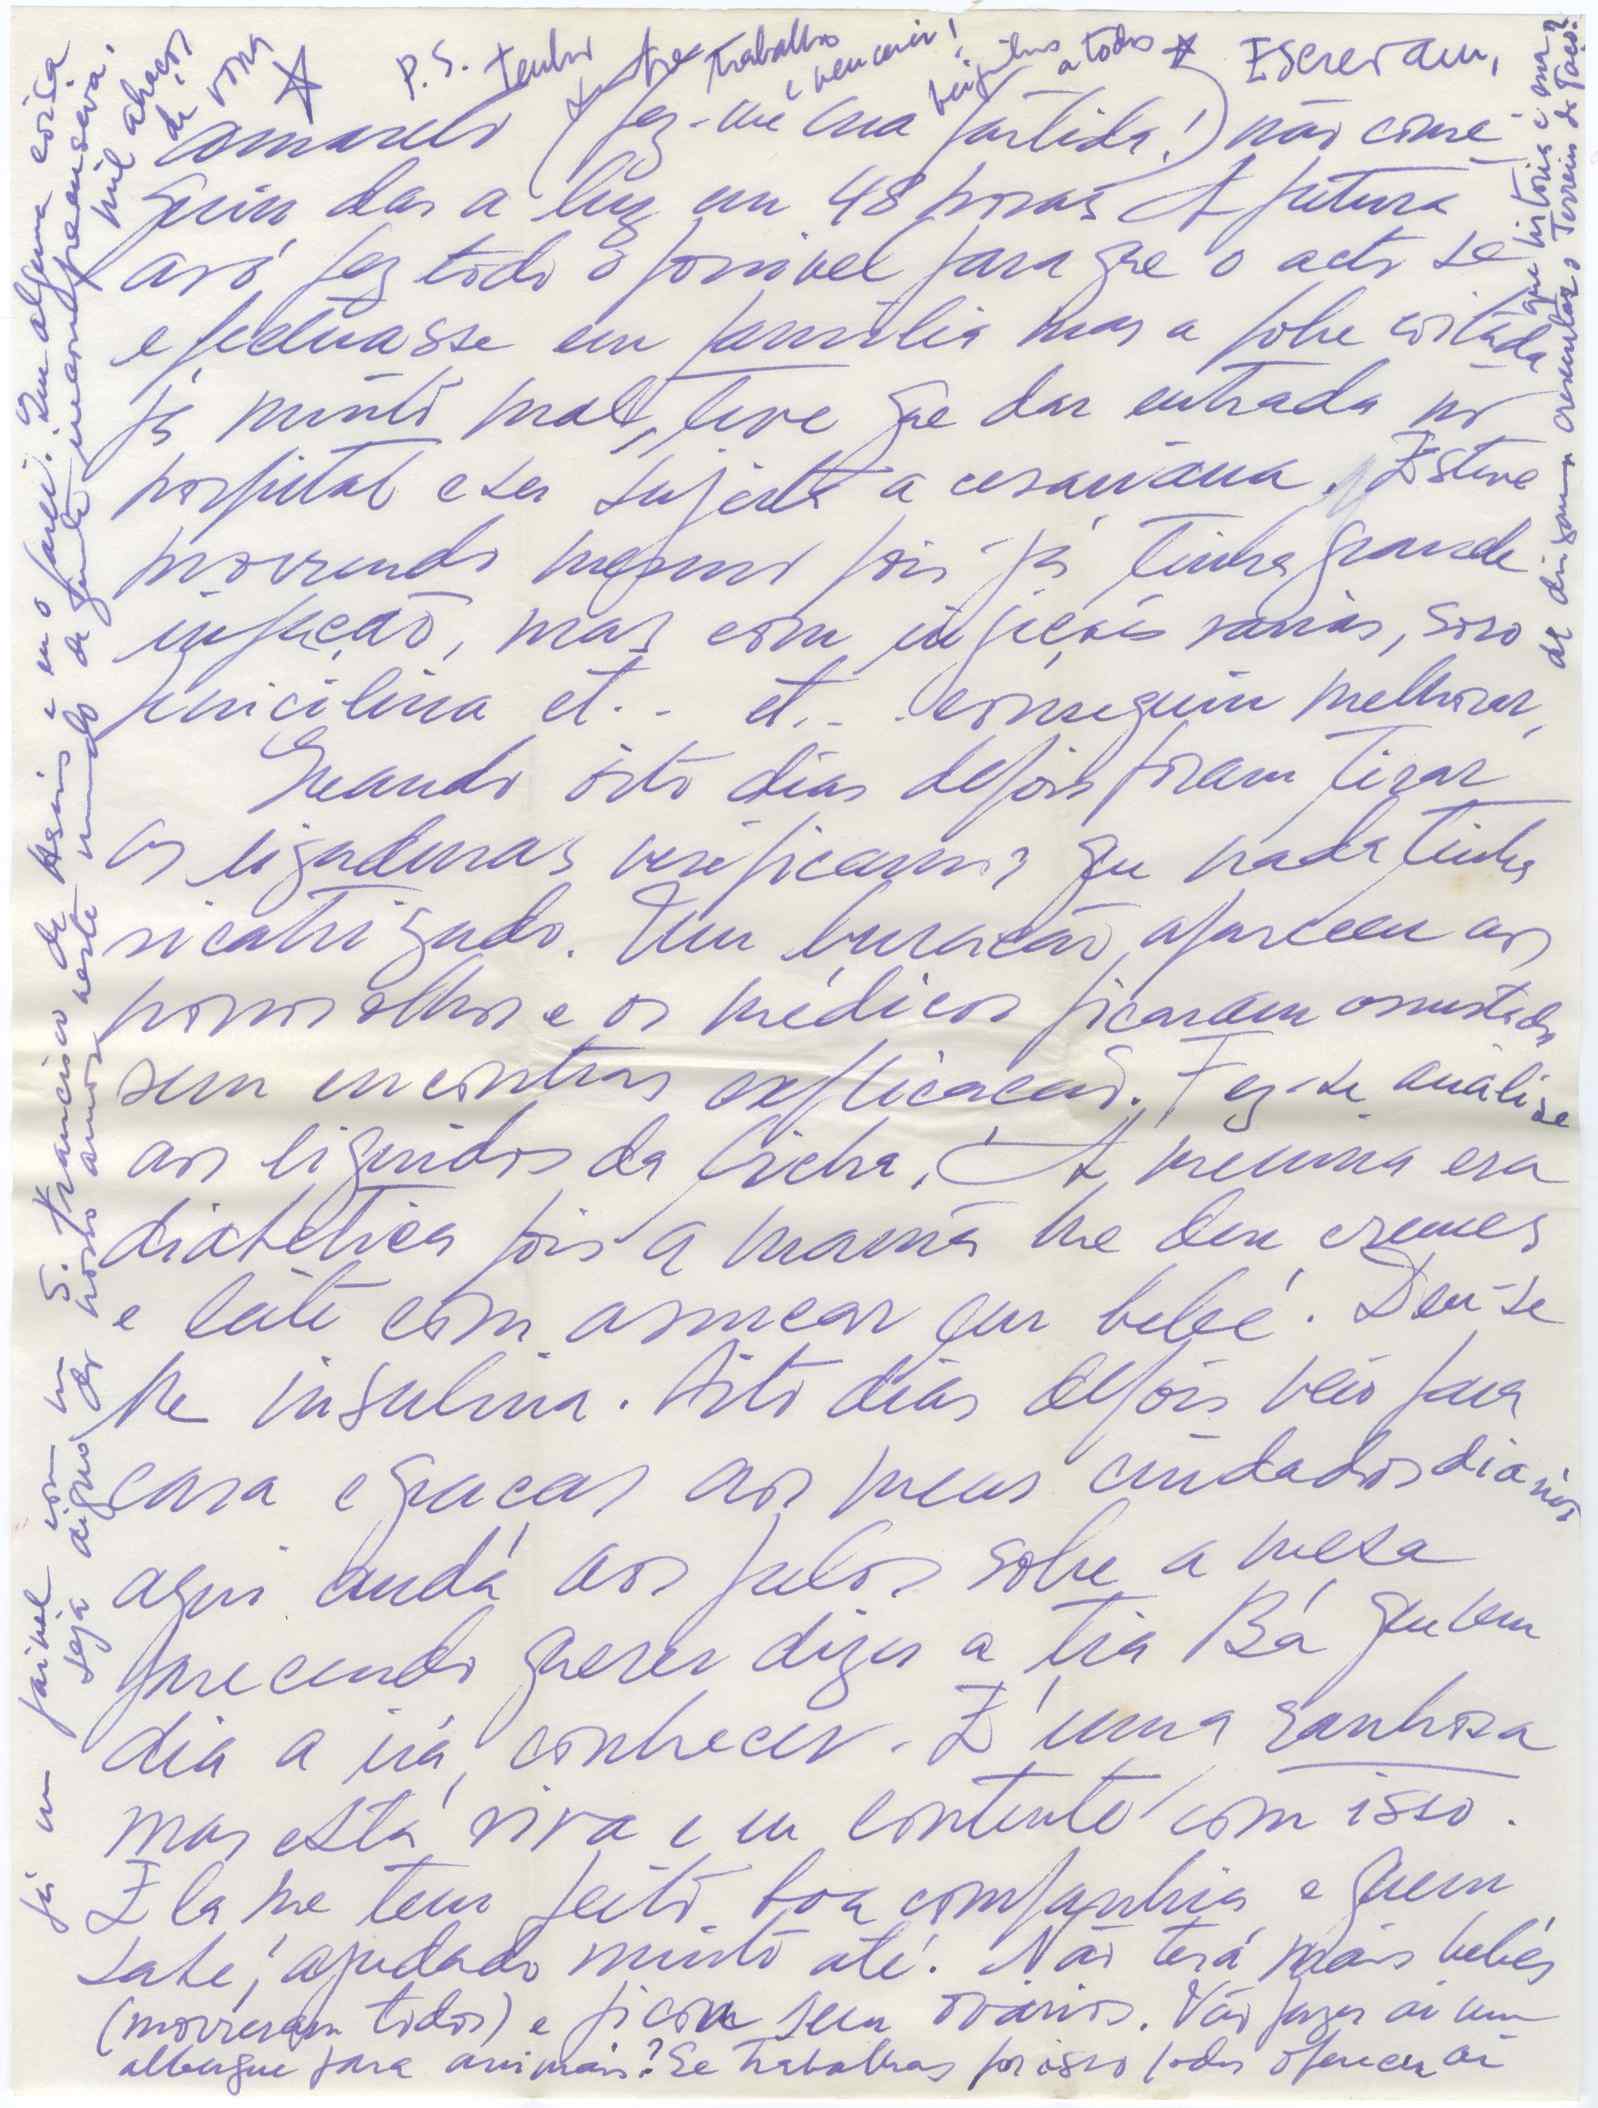 amarelo (fez-me uma partida!) não conse-
guiu dar a luz em 48 horas A futura
avó fez todo o possivel para que o acto se
efectuasse em família mas a pobre coitada
já muito mal, teve que dar entrada no
hospital e ser sujeita a cesariana. Esteve
morrendo mesmo pois já tinha grande
infecção, mas com injeções varias, soro
penicilina et.. et... conseguiu melhorar,
Quando oito dias depois foram tirar
as ligaduras verificamos que nada tinha
cicatrizado. Um buracão apareceu aos
nossos olhos e os médicos ficaram assustados
sem encontrar explicação. Fez-se análise
aos liquidos da bicha. A menina era
diabetica pois a mamã lhe deu cremes
e leite com assucar em bebé. Deu-se
lhe insulina. Oito dias depois veio para
casa e graças aos meus cuidados diarios
aqui anda aos pulos sobre a mesa
parecendo querer dizer a tia Bá que um
dia a irá conhecer. É uma ranhosa
mas está viva e eu contente com isso.
Ela me tem feito boa companhia e quem
sabe, ajudado muito até! Não terá mais bebés
(morreram todos) e ficou sem ovarios. Vão fazer ai um
albergue para animais? Se trabalhas por isso podes oferecer ai
já um painel com um S. Francisco de Assis e eu o farei. Sem alguma coisa
seja digno do nosso amor neste mundo de gente incompreensiva!
mil abraços
de
vossa
P.S. Tenho trabalho
e vencerei!
beijinhos a todos
Escrevam,
que historia é essa
de dizerem arrendar o Terreiro do Paço?